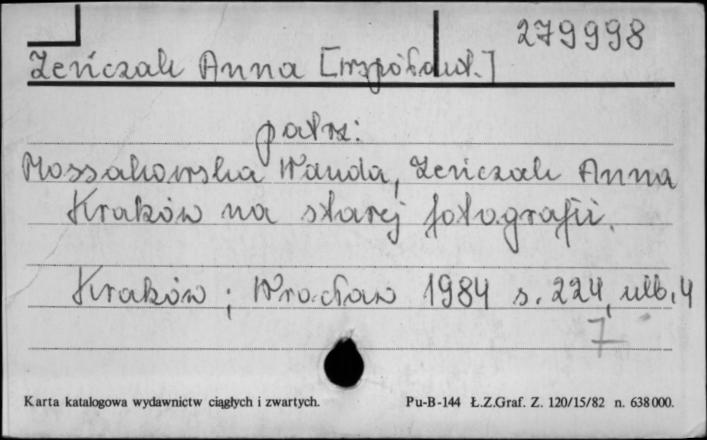 279998
Zeńczak Anna [współaut.]
patrz:
Mossakowska Wanda, Zeńczak Anna
Kraków na starej fotografii.
Kraków ; Wrocław 1984 s. 224, ulb. 4
7
Karta katalogowa wydawnictw ciągłych i zwartych. Pu-B-144 Ł.Z.Graf. Z. 120/15/82 n. 638000.